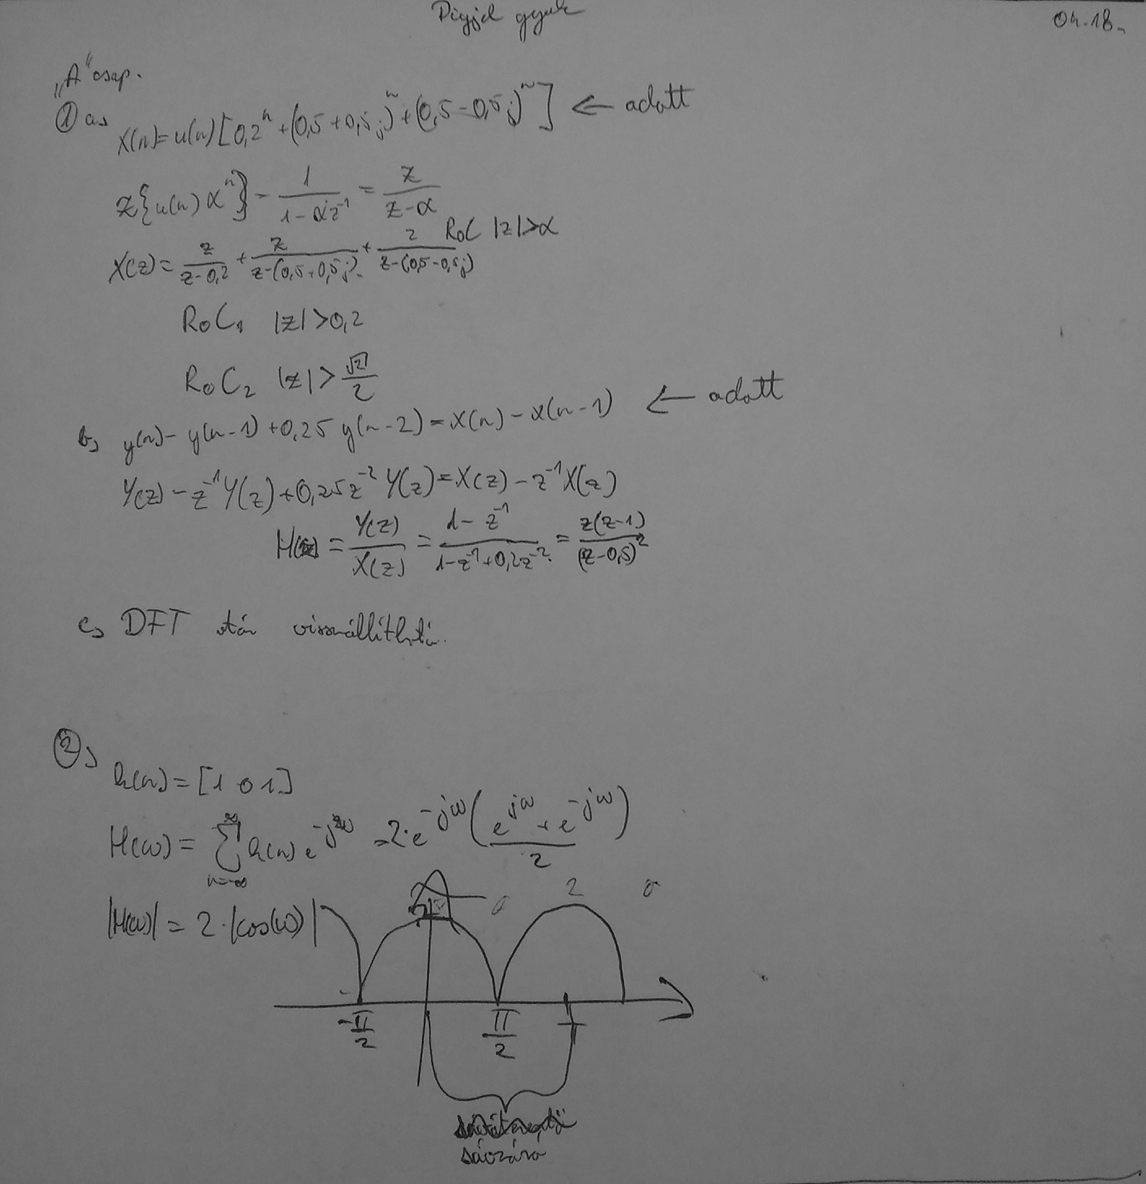 Digjel gyak
04.18.
„A" csop.
① a,
x(n)=u(n)[0,2^n+(0,5+0,5j)^n+(0,5-0,5j)^n] ← adott
Z{u(n)α^n} - 1/(1-αz^-1) = z/(z-α)
RoC |z|>α
X(z)= z/(z-0,2) + z/(z-(0,5+0,5j)) + z/(z-(0,5-0,5j))
RoC₁ |z|>0,2
RoC₂ |z|>√2/2
b, y(n)-y(n-1)+0,25y(n-2)=x(n)-x(n-1) ← adott
Y(z)-z^-1Y(z)+0,25z^-2Y(z)=X(z)-z^-1X(z)
H(z)=Y(z)/X(z)=(1-z^-1)/(1-z^-1+0,2z^-2)=z(z-1)/(z-0,5)^2
c, DFT
②,
h(n)=[1 0 1]
H(ω)=∑_{n=-∞}^{∞} h(n)e^-jω =2·e^-jω((e^jω+e^-jω)/2)
|H(ω)|=2·|cos(ω)|
2
-π/2
π/2
sávzáró